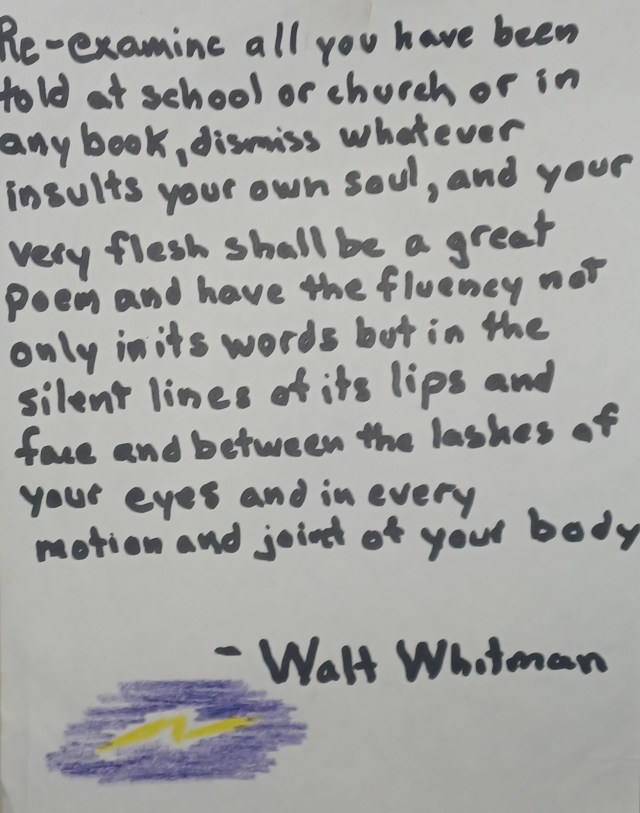 Re-examine all you have been
told at school or church or in
any book, dismiss whatever
insults your own soul, and your
very flesh shall be a great
Poem and have the fluency not
only in its words but in the
silent lines of its lips and
face and between the lashes of
your eyes and in every
motion and joint of your body
- Walt Whitman